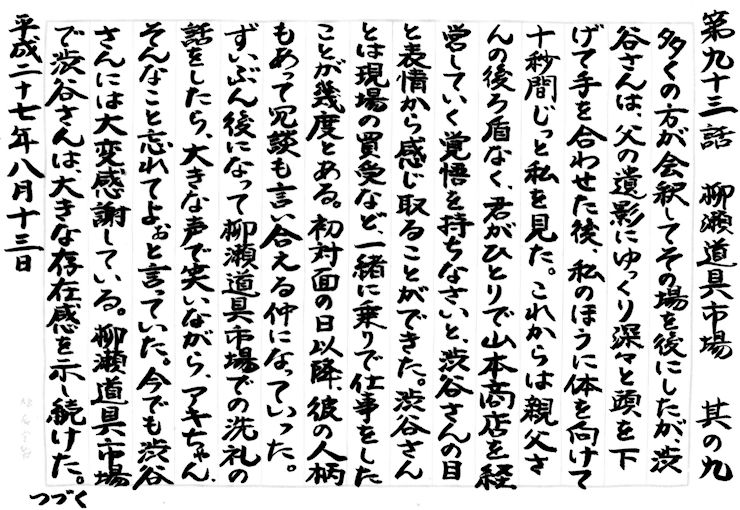 第九十三話 柳瀬道具市場 其の九
多くの方が会釈してその場を後にしたが、渋
谷さんは、父の遺影にゆっくり深々と頭を下
げて手を合わせた後、私のほうに体を向けて
十秒間じっと私を見た。これからは親父さ
んの後ろ盾なく、君がひとりで山本商店を経
営していく覚悟を持ちなさいと、渋谷さんの目
と表情から感じ取ることができた。渋谷さん
とは現場の買受など、一緒に乗りで仕事をした
ことが幾度とある。初対面の日以降、彼の人柄
もあって冗談も言い合える仲になっていった。
ずいぶん後になって柳瀬道具市場での洗礼の
話をしたら、大きな声で笑いながら、アキちゃん、
そんなこと忘れてよぉと言っていた。今でも渋谷
さんには大変感謝している。柳瀬道具市場
で渋谷さんは、大きな存在感を示し続けた。
つづく
平成二十七年八月十三日